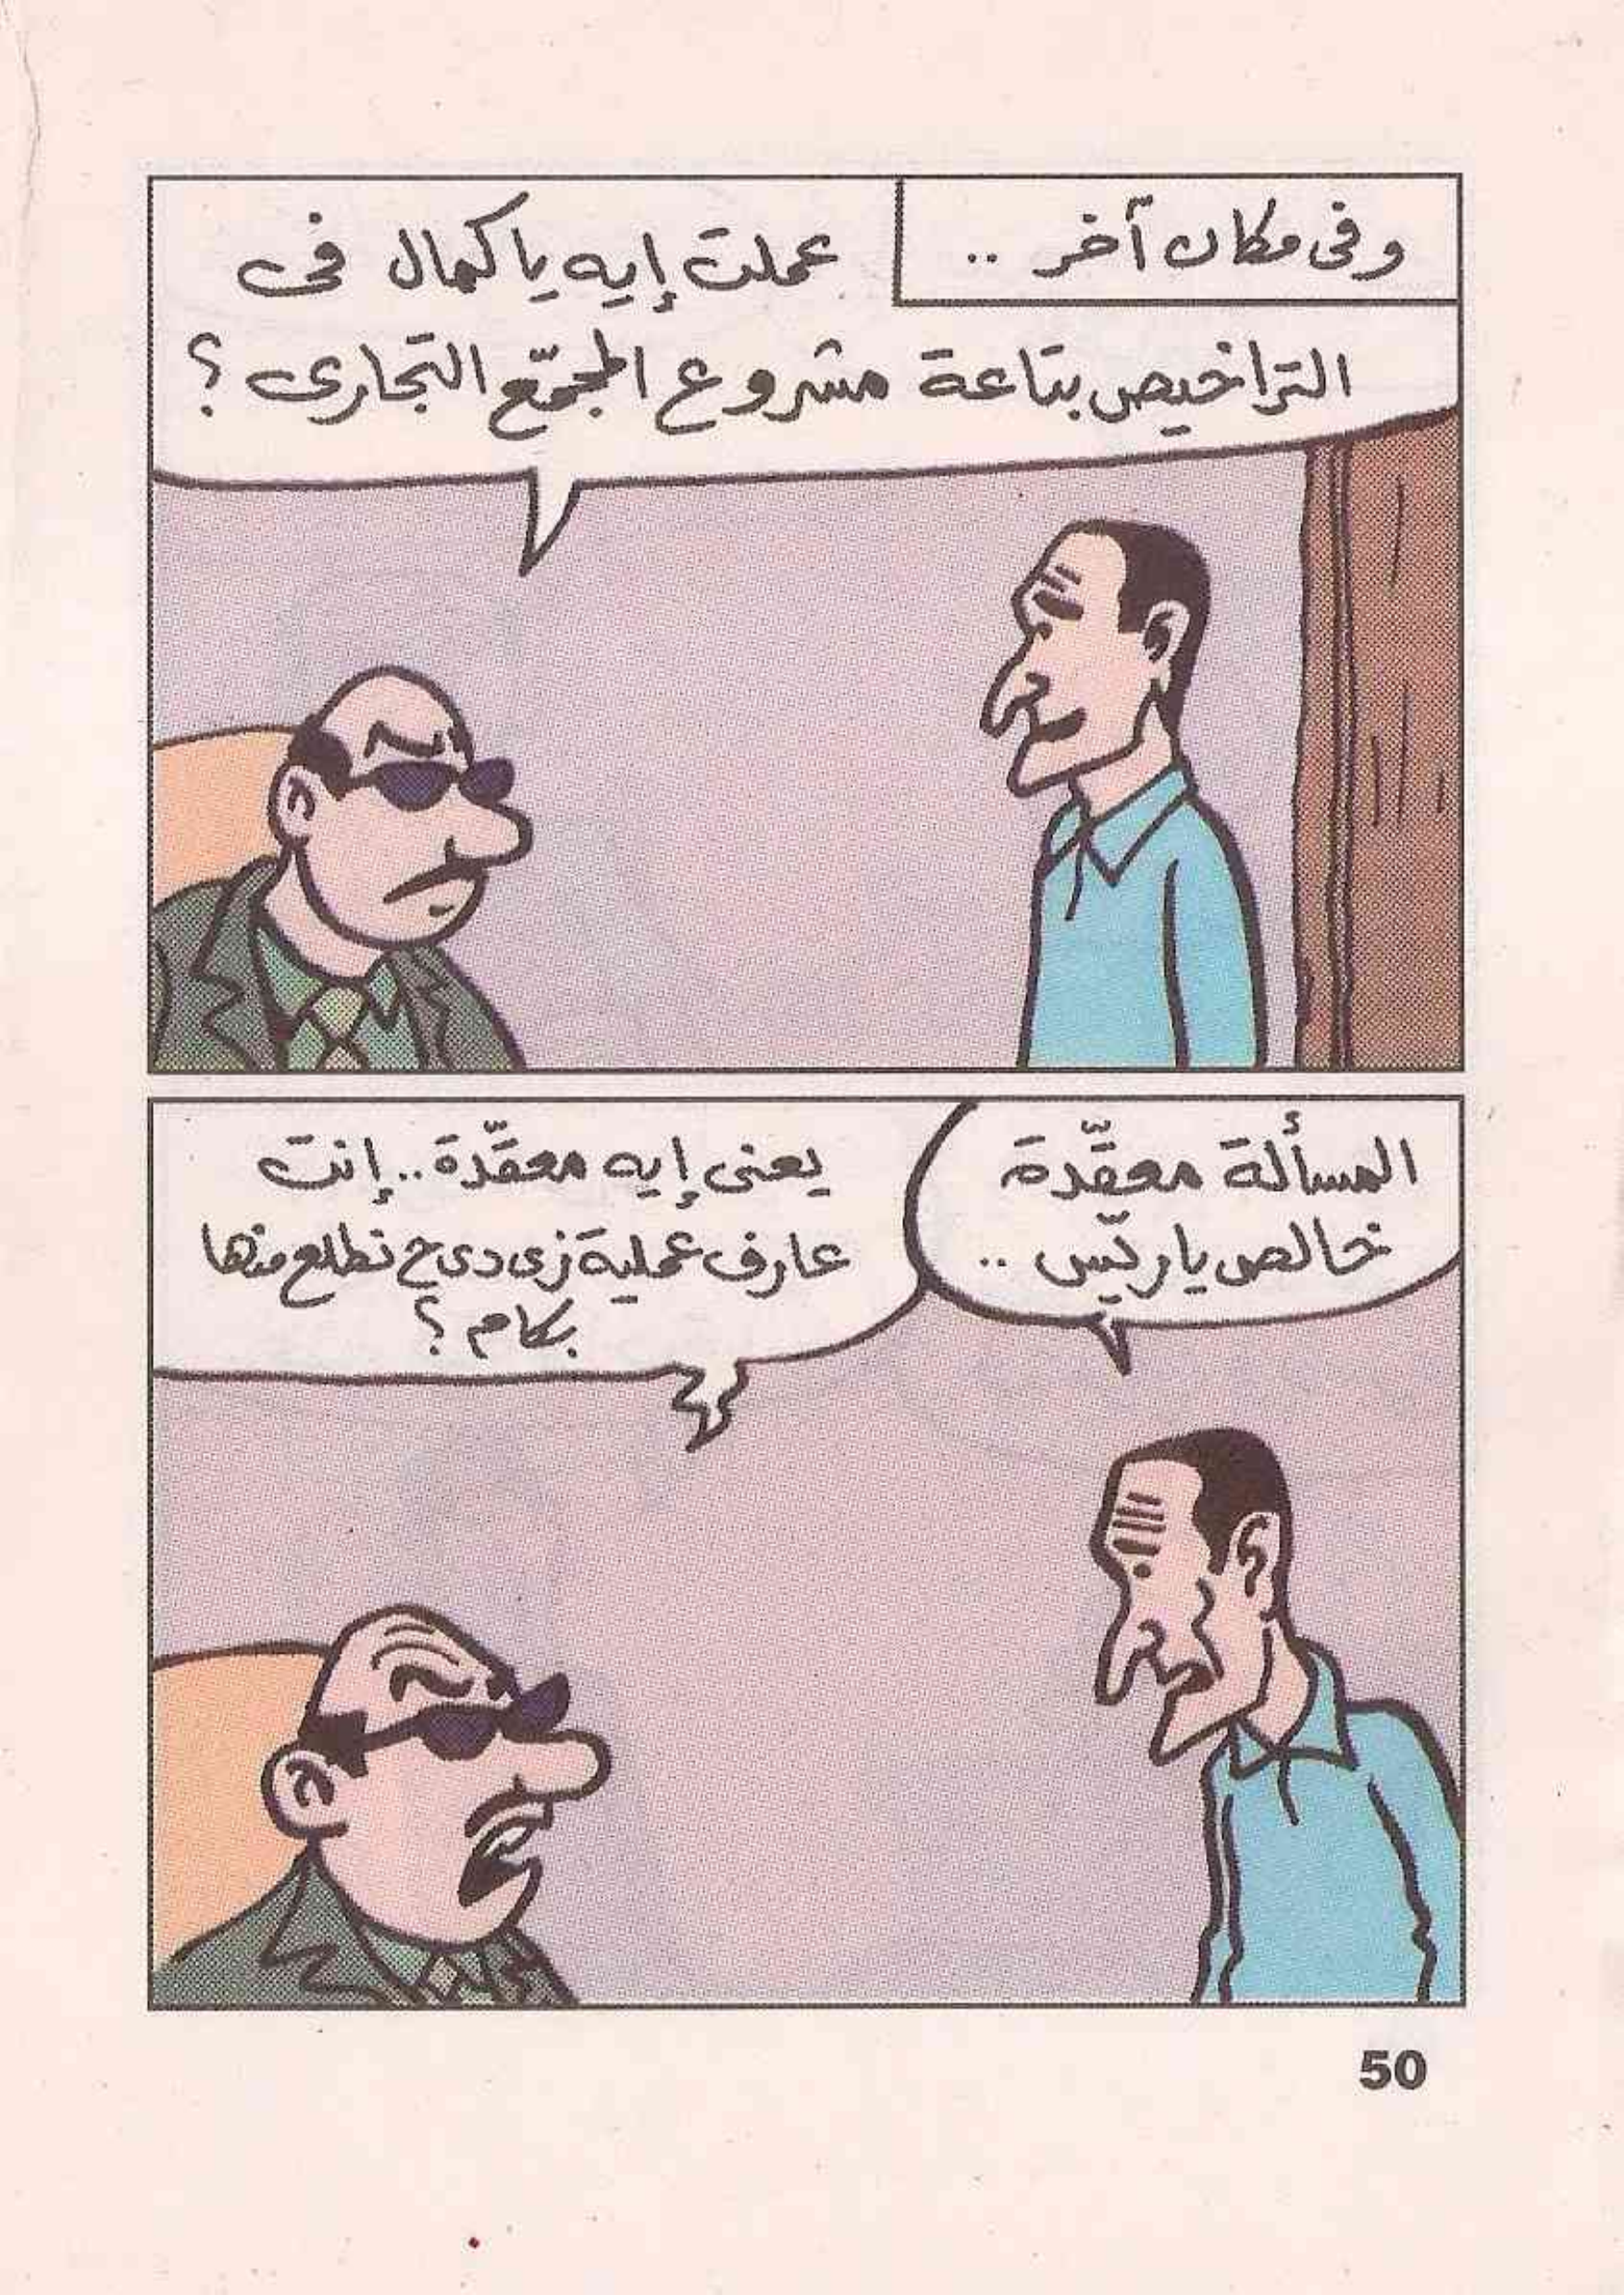 وفى مكان آخر ..
عملت إيه يا كمال فى
التراخيص بتاعة مشروع المجمّع التجارى ؟
المسألة معقّدة
خالص ياريّس ..
يعنى إيه معقّدة.. إنت
عارف عملية زى دى ح نطلع منها
بكام ؟
50